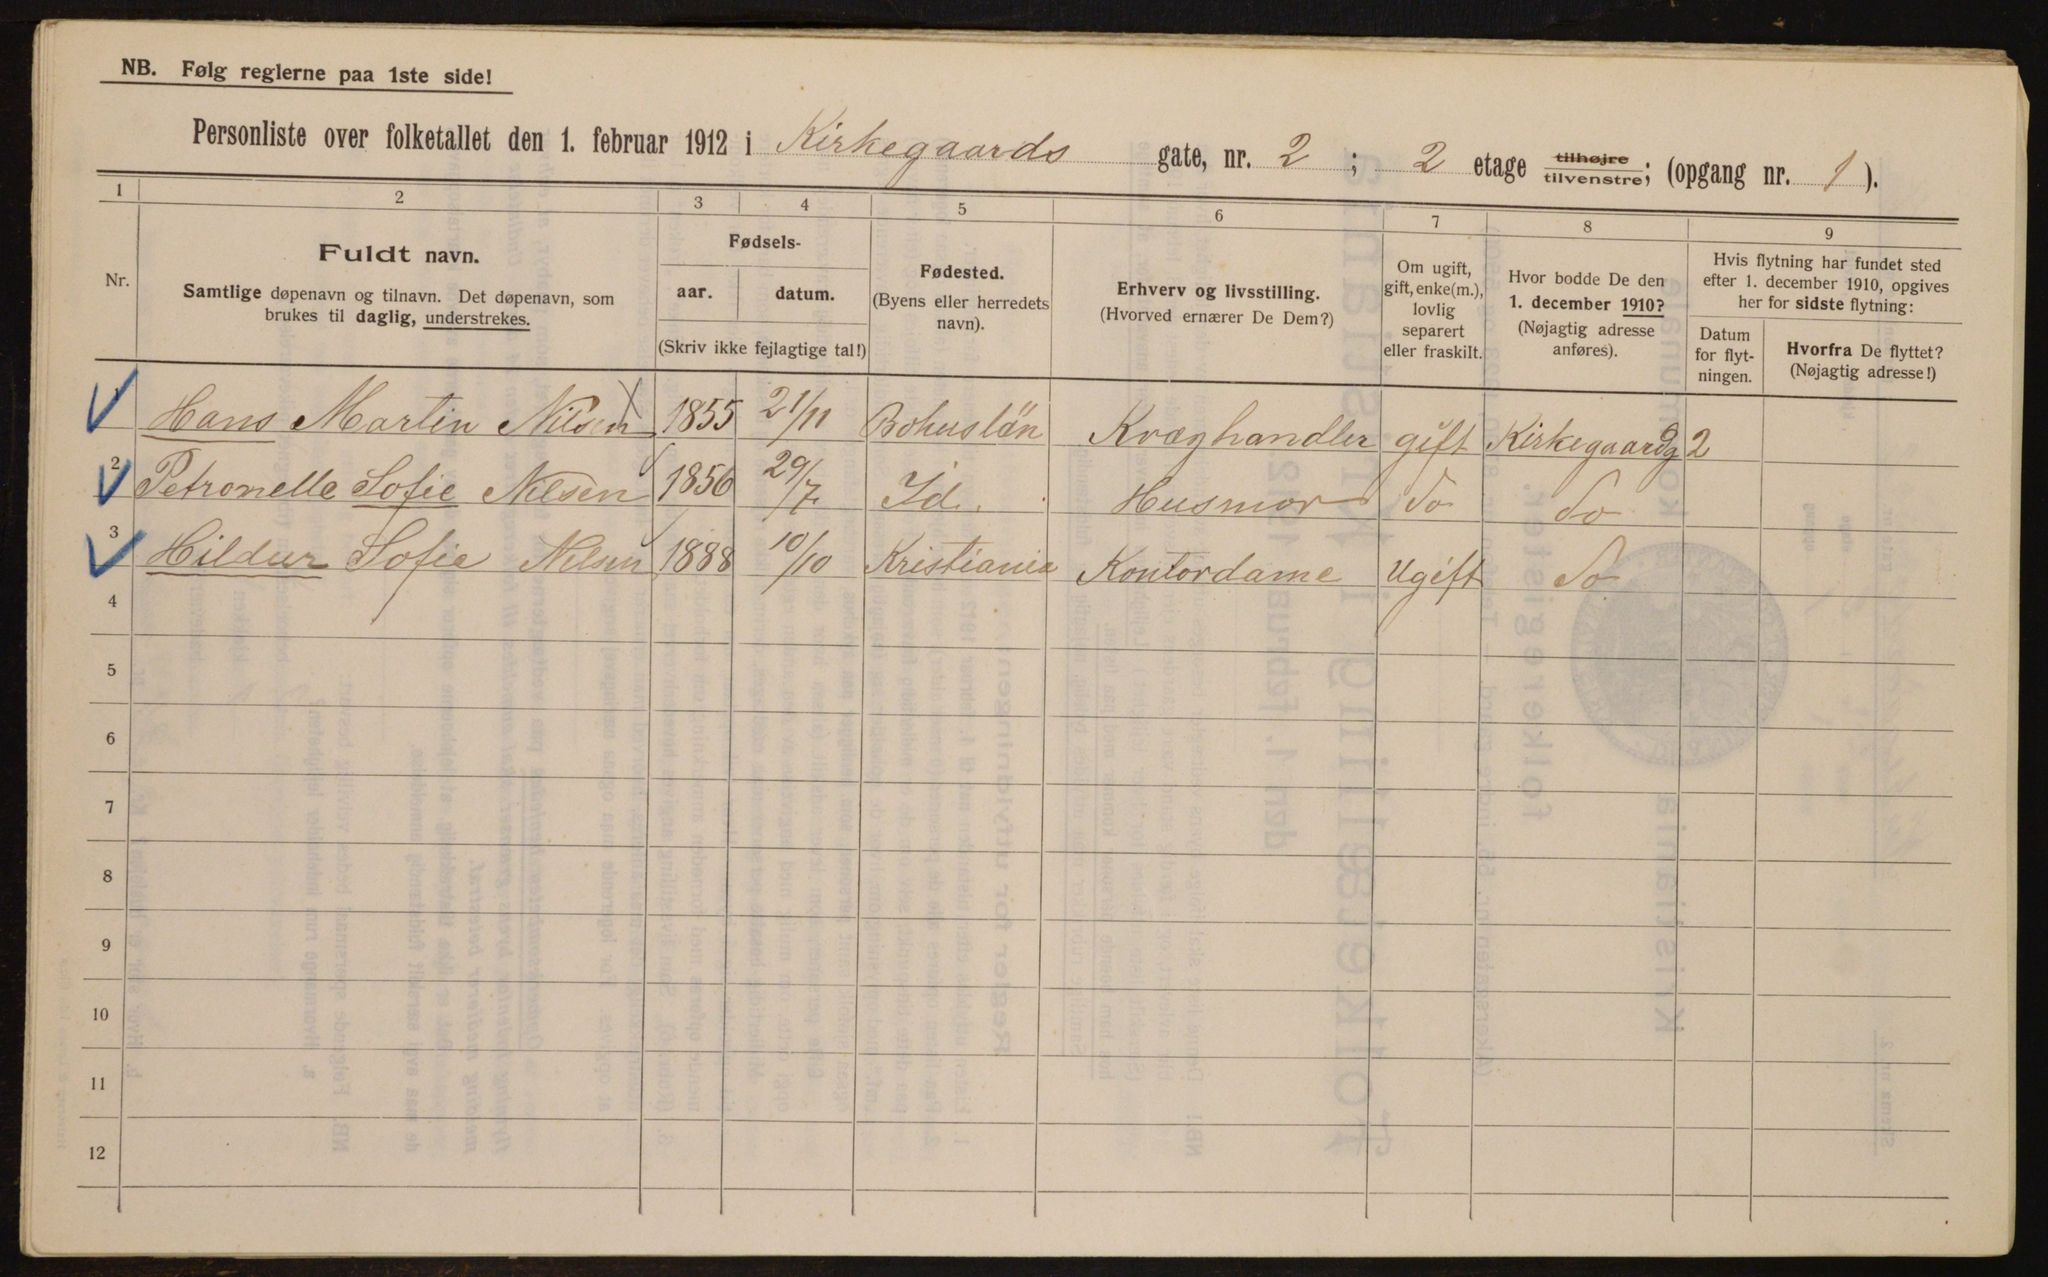 NB. Følg reglerne paa 1ste side!
Personliste over folketallet den 1. februar 1912 i Kirkegaards gate, nr. 2 ; 2 etage tilhøjre tilvenstre; (opgang nr. 1 ).
1 2 3 4 5 6 7 8 9
Nr.
Fuldt navn.
Samtlige døpenavn og tilnavn. Det døpenavn, som
brukes til daglig, understrekes.
Fødsels-
aar. datum.
(Skriv ikke fejlagtige tal!)
Fødested.
(Byens eller herredets
navn).
Erhverv og livsstilling.
(Hvorved ernærer De Dem?)
Om ugift,
gift, enke(m.),
lovlig
separert
eller fraskilt.
Hvor bodde De den
1. december 1910?
(Nøjagtig adresse
anføres).
Hvis flytning har fundet sted
efter 1. december 1910, opgives
her for sidste flytning:
Datum
for flyt-
ningen.
Hvorfra De flyttet?
(Nøjagtig adresse!)
1 Hans Martin Nilsen 1855 21/11 Bohuslän Kvæghandler gift Kirkegaardg 2
2 Petronelle Sofie Nilsen 1856 29/7 Id. Husmor do do
3 Hildur Sofie Nilsen 1888 10/10 Kristiania Kontordame Ugift do
4
5
6
7
8
9
10
11
12